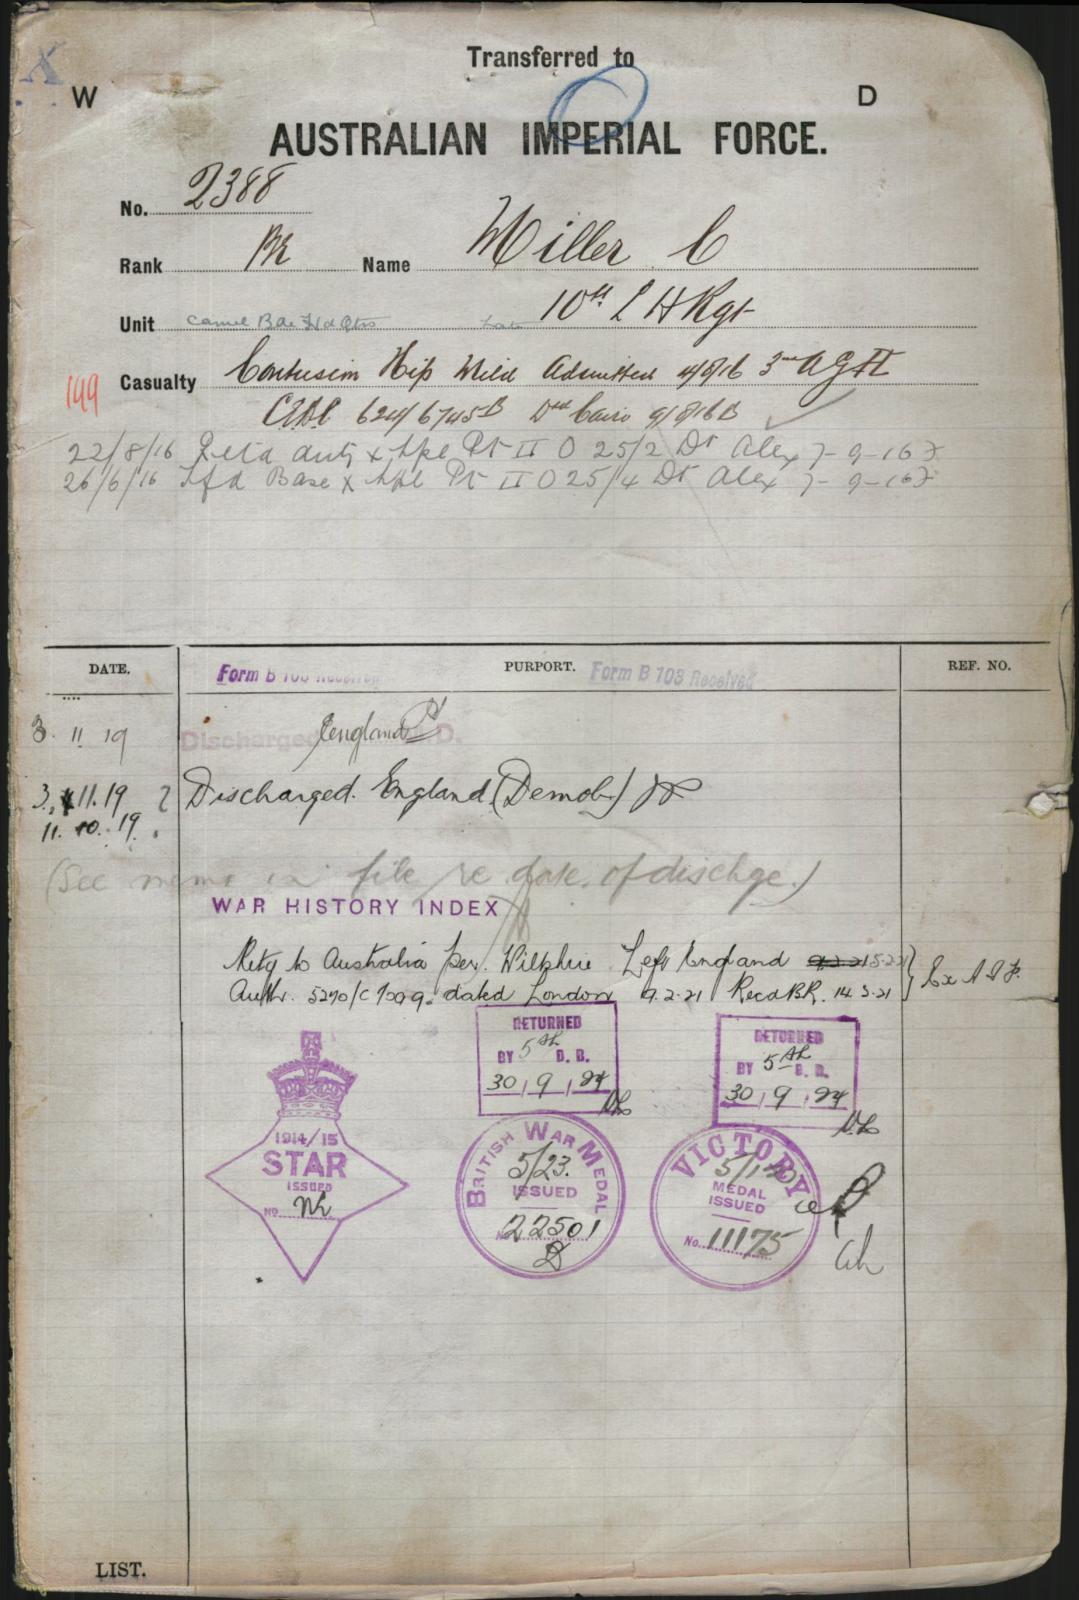 Transferred to
W D
AUSTRALIAN IMPERIAL FORCE.
No. 2388
Rank Pte Name Miller C
Unit Camel Bde Hd Qtrs late 10th L H Rgt
149 Casualty Contusion Hip Mild Admitted 4/8/16 3rd AGH
624/6745B Dtd Cairo 9/8/16 B
22/8/16 duty x hpl Pt II O 25/2 Dt Alex 7-9-16
26/6/16 Tfd Base x hpl Pt II O 25/4 Dt Alex 7-9-16
DATE. PURPORT. REF. NO.
Form B 103 Received Form B 103 Received
3 11 19 Discharged England
3. 11. 19 ? Discharged England (Demob)
11. 10. 19.
(See memo in file re date of dischge.)
WAR HISTORY INDEX
Retg to Australia per. Wiltshire Left England 9.2.21 5.2.21
Auth. 5270/C dated London 9.2.21 Recd BR. 14.3.21 Ex A I F.
RETURNED
BY 5th B. R.
30 9 24
RETURNED
BY 5th B. R.
30 9 24
1914/15
STAR
ISSUED
NO.
BRITISH WAR MEDAL
5/23.
ISSUED
No. 22501
VICTORY
MEDAL
ISSUED
No. 11175
LIST.